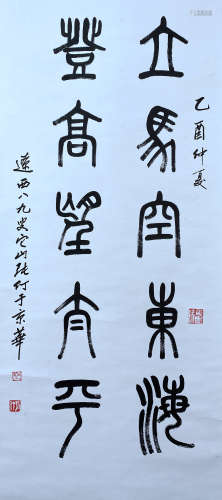 乙酉仲夏
立馬空東海
登高望太平
遼西八九叟山張于京華